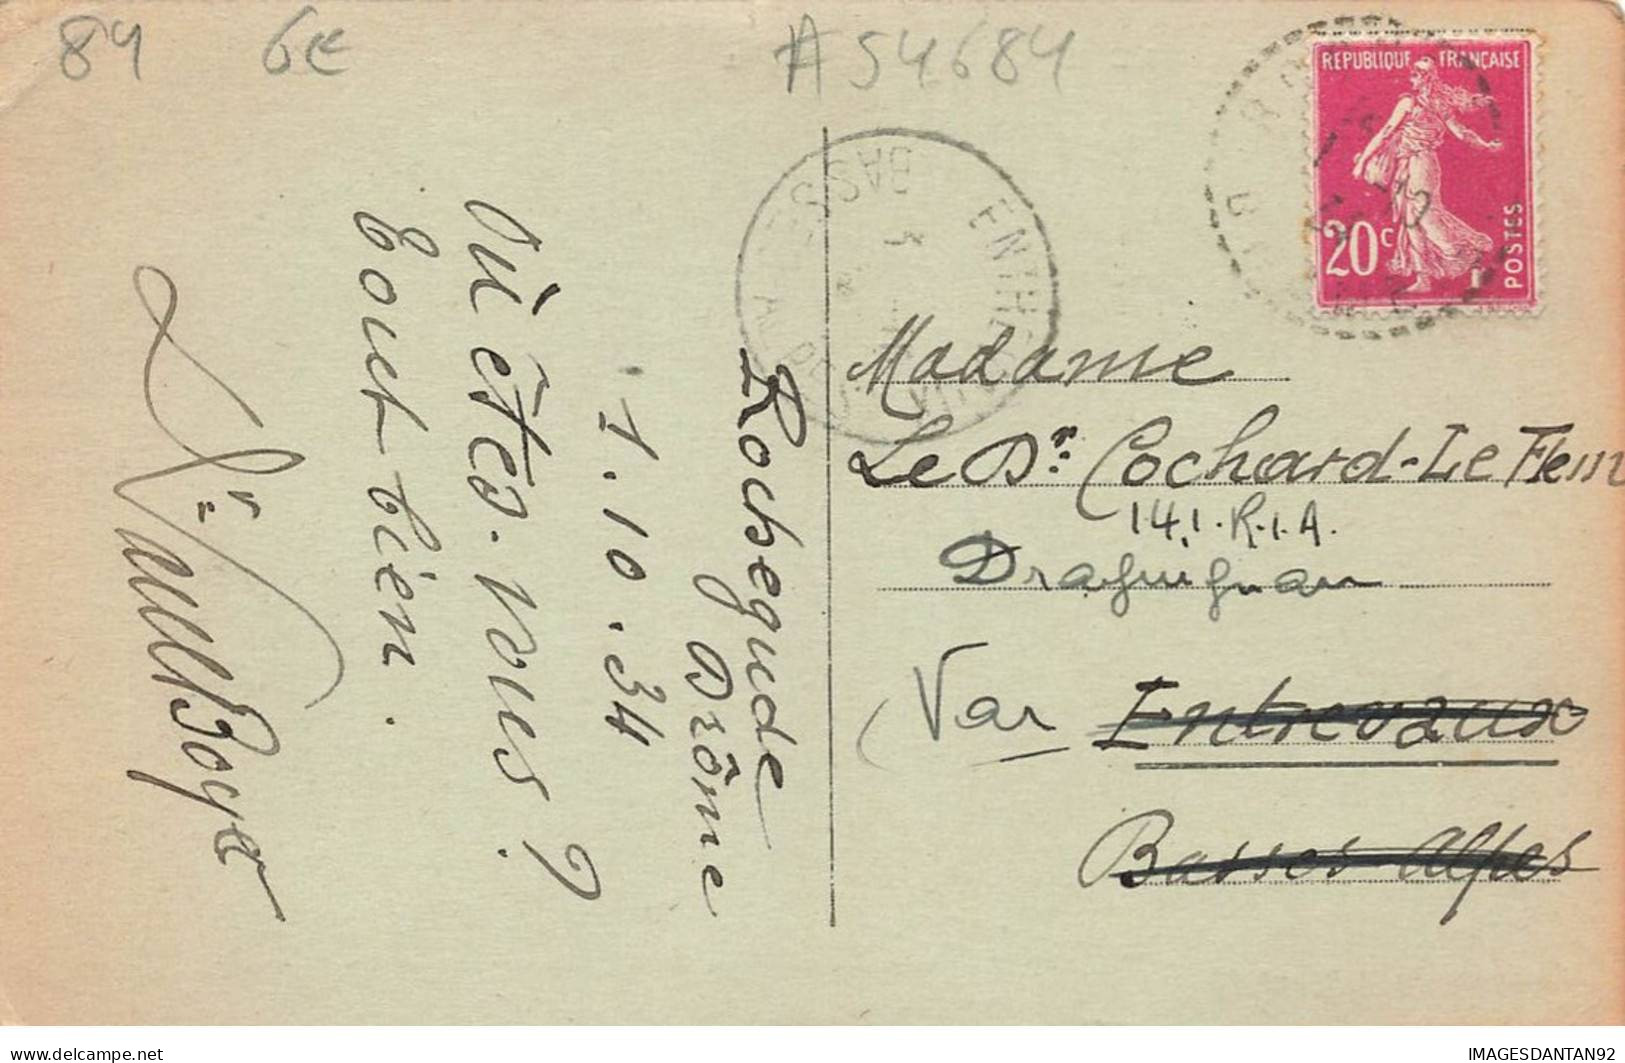 84 6€ A54684
REPUBLIQUE FRANÇAISE
20c
POSTES
ENTREVAUX
BASSES-ALPES
Rochegude
Drôme
1.10.34
Où êtes-vous ?
Tout bien.
Dr
Madame
Le Dr: Cochard-Le Flem
141.R.I.A.
Draguignan
Var Entrevaux
Basses Alpes
www.delcampe.net
IMAGESDANTAN92